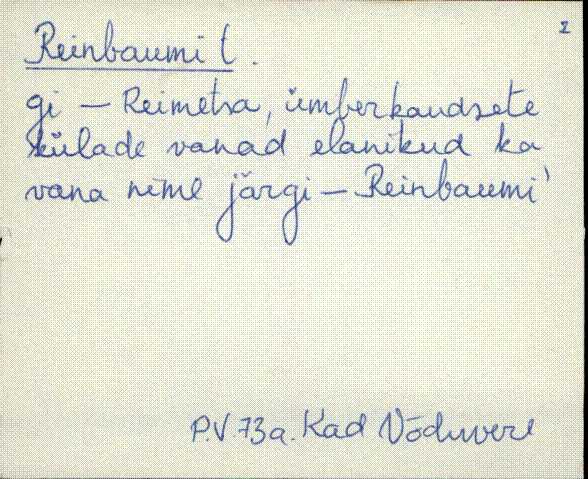 2
Reinbaumi t.
gi — Reimetsa, ümberkaudsete
külade vanad elanikud ka
vana nime järgi — Reinbaumi'
P.V. 73a. Kad Võduvere